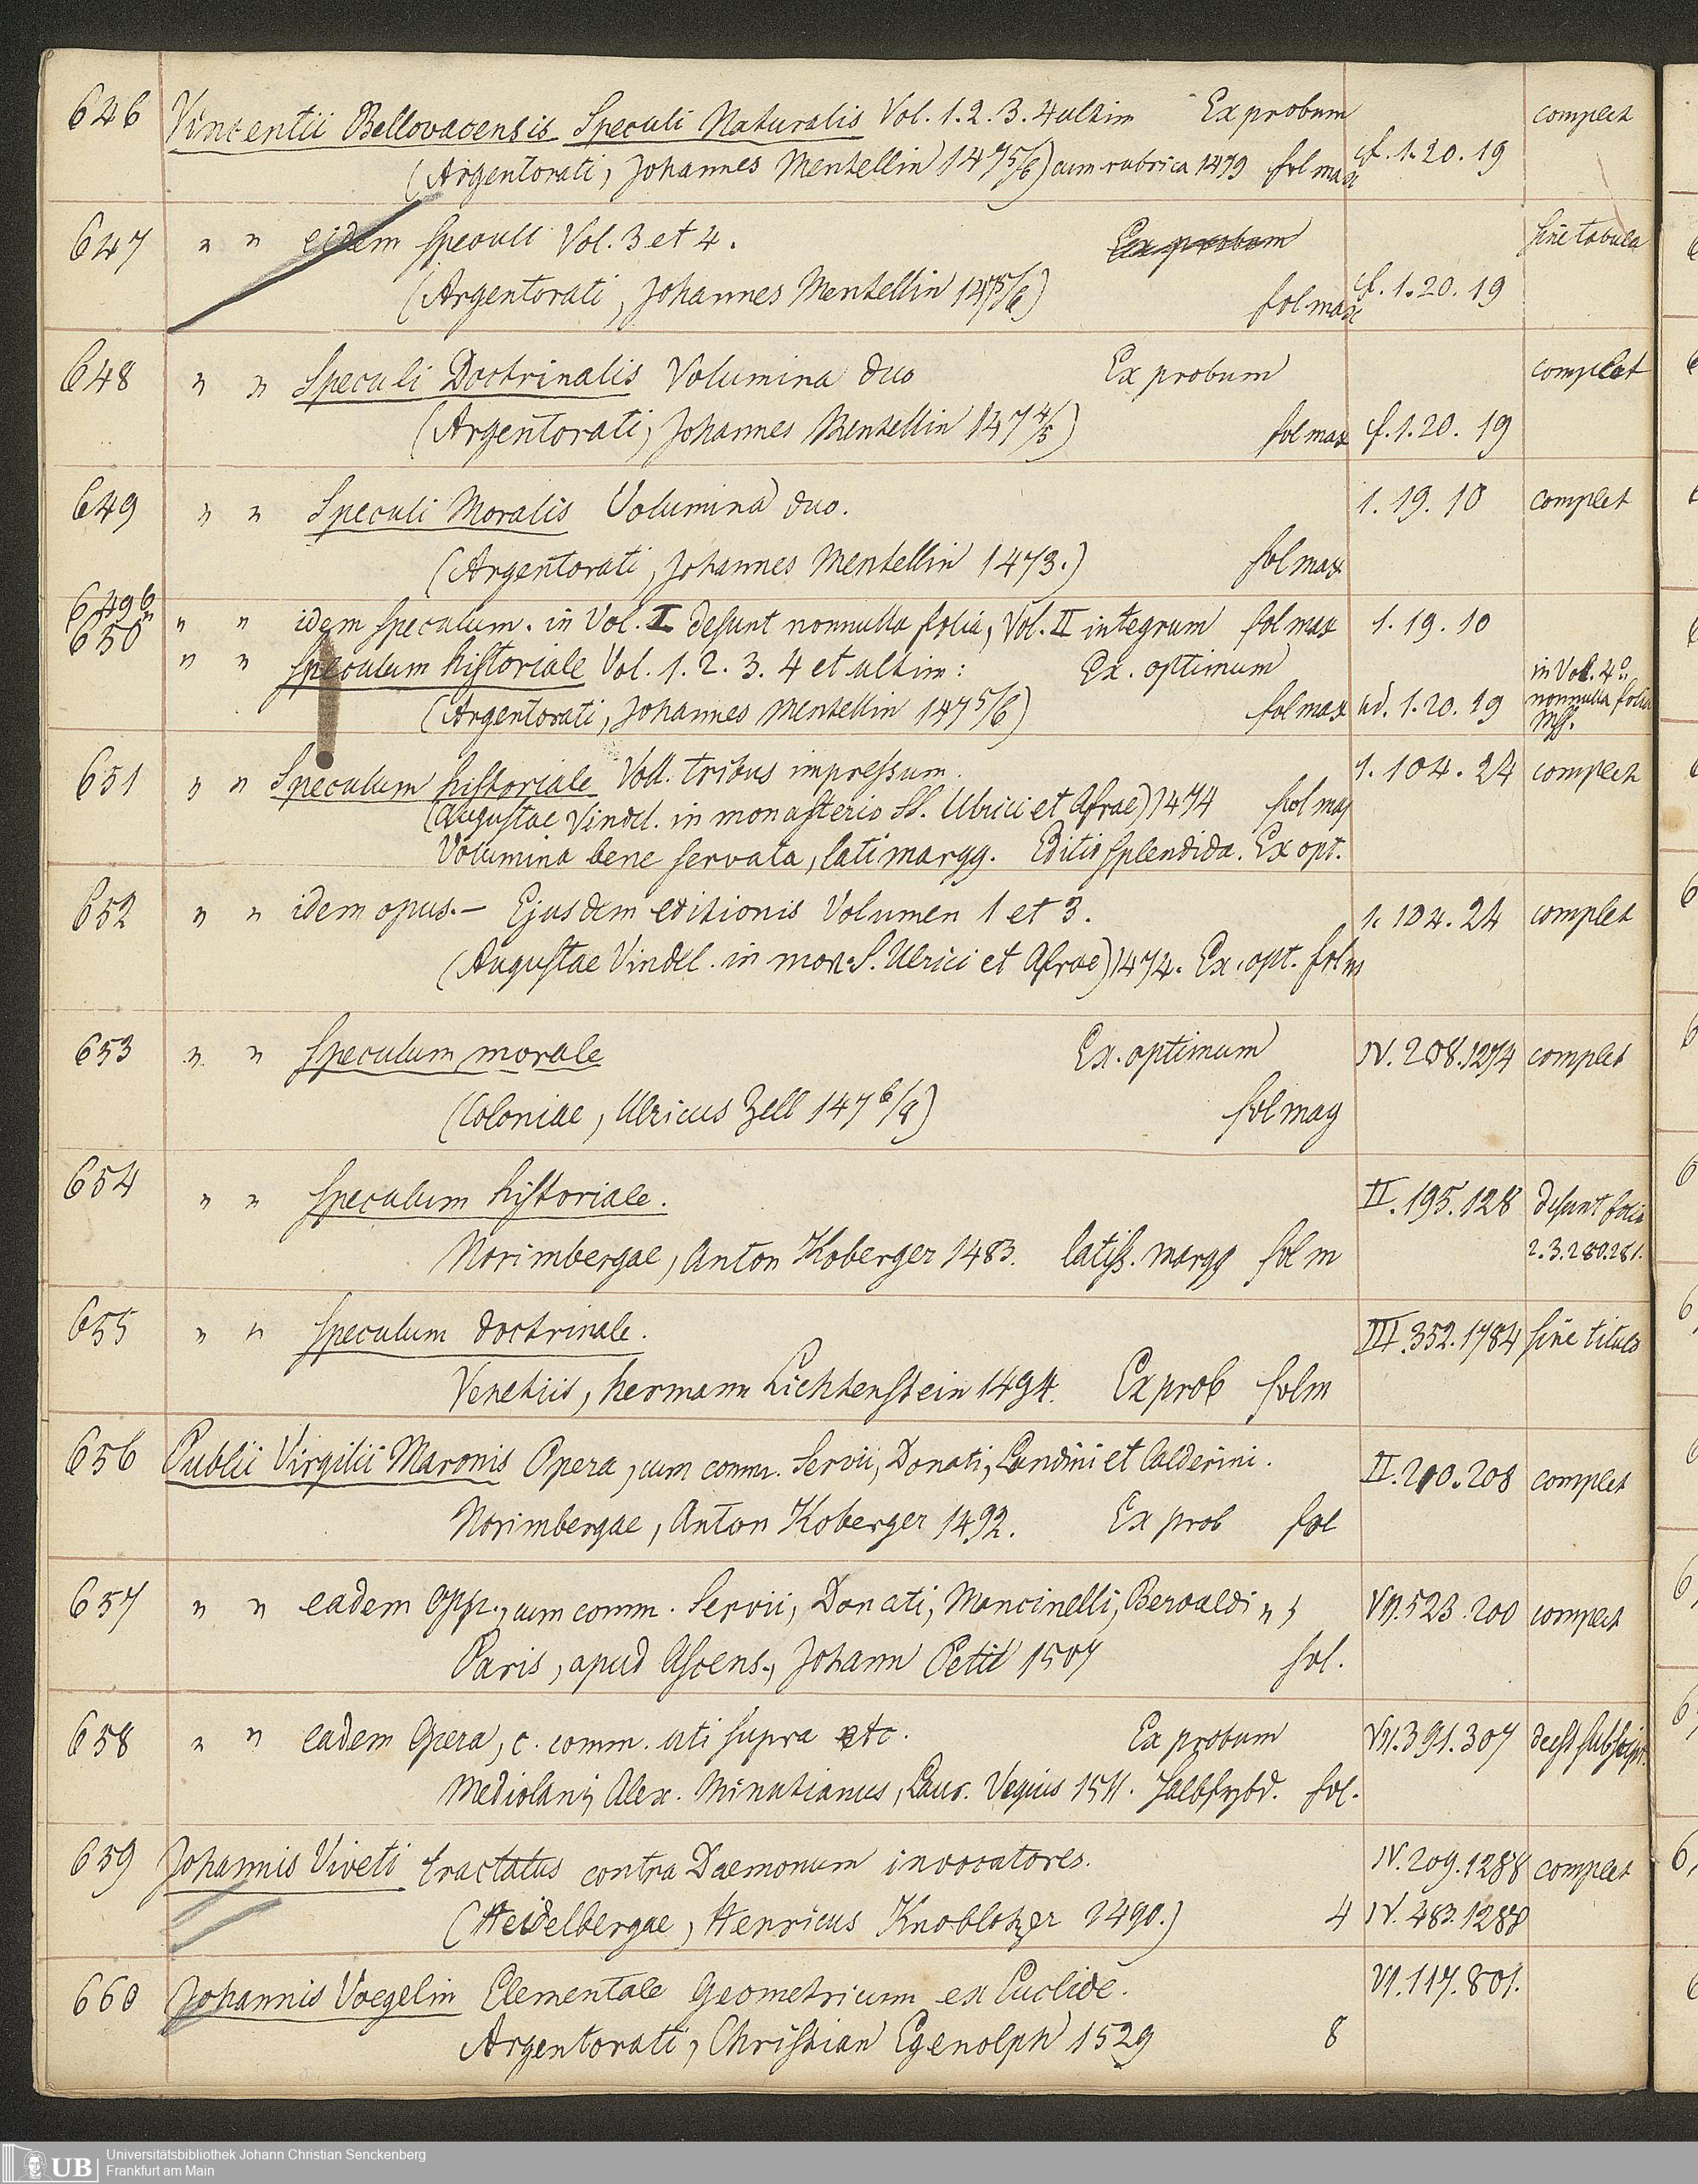 646 Vincentii Bellovacensis Speculi Naturalis Vol. 1. 2. 3. 4 ultim Ex probum complet
(Argentorati, Johannes Mentellin 1475/6) cum rubrica 1479 fol max cf. 1. 20. 19
647 " " eidem Speculi Vol. 3 et 4. Ex probum sine tabula
(Argentorati, Johannes Mentellin 1475/6) fol max cf. 1. 20. 19
648 " " Speculi Doctrinalis Volumina duo Ex probum complet
(Argentorati, Johannes Mentellin 1474/5) fol max cf. 1. 20. 19
649 " " Speculi Moralis Volumina duo. 1. 19. 10 complet
(Argentorati, Johannes Mentellin 1473.) fol max
649b " " idem speculum. in Vol. I desunt nonnulla folia, Vol. II integrum fol max 1. 19. 10
650 " " Speculum historiale Vol. 1. 2. 3. 4 et ultim: Ex. optimum in Vol. 4o
(Argentorati, Johannes Mentellin 1475/6) fol max ad. 1. 20. 19 nonnulla folia
Mss.
651 " " Speculum historiale Voll. tribus impressum. 1. 104. 24 complet
(Augustae Vindel. in monasterio SS. Ulrici et Afrae) 1474 fol maj
Volumina bene servata, lati margg. Editio splendida. Ex opt.
652 " " idem opus. – Ejusdem editionis Volumen 1 et 3. 1. 104. 24 complet
(Augustae Vindel. in mon. S. Ulrici et Afrae) 1474. Ex. opt. fol m
653 " " Speculum morale Ex. optimum IV. 208. 1274 complet
(Coloniae, Ulricus Zell 1476/8) fol mag
654 " " Speculum historiale. II. 195. 128 desunt folia
Norimbergae, Anton Koberger 1483. latiss. margg fol m 2. 3. 280. 281.
655 " " Speculum doctrinale. III. 352. 1784 sine titulo
Venetiis, Hermann Lichtenstein 1494. Ex prob fol m
656 Publii Virgilii Maronis Opera, cum comm. Servii, Donati, Landini et Calderini. II. 210. 208 complet
Norimbergae, Anton Koberger 1492. Ex prob fol
657 " " eadem Opp., cum comm. Servii, Donati, Mancinelli, Beroaldi " " VII. 523. 200 complet
Paris, apud Ascens., Johann Petit 1507 fol.
658 " " eadem Opera, c. comm. uti supra etc. Ex probum VII. 391. 307 deest subscript.
Mediolani, Alex. Minutianus, Laur. Vegius 1511. Halbfrzbd. fol.
659 Johannis Viveti tractatus contra Daemonum invocatores. IV. 209. 1288 complet
(Heidelbergae, Henricus Knoblotzer 1490.) 4 IV. 483. 1288
660 Johannis Voegelin Elementale Geometricum ex Euclide. VI. 117. 801.
Argentorati, Christian Egenolph 1529 8
UB Universitätsbibliothek Johann Christian Senckenberg
Frankfurt am Main